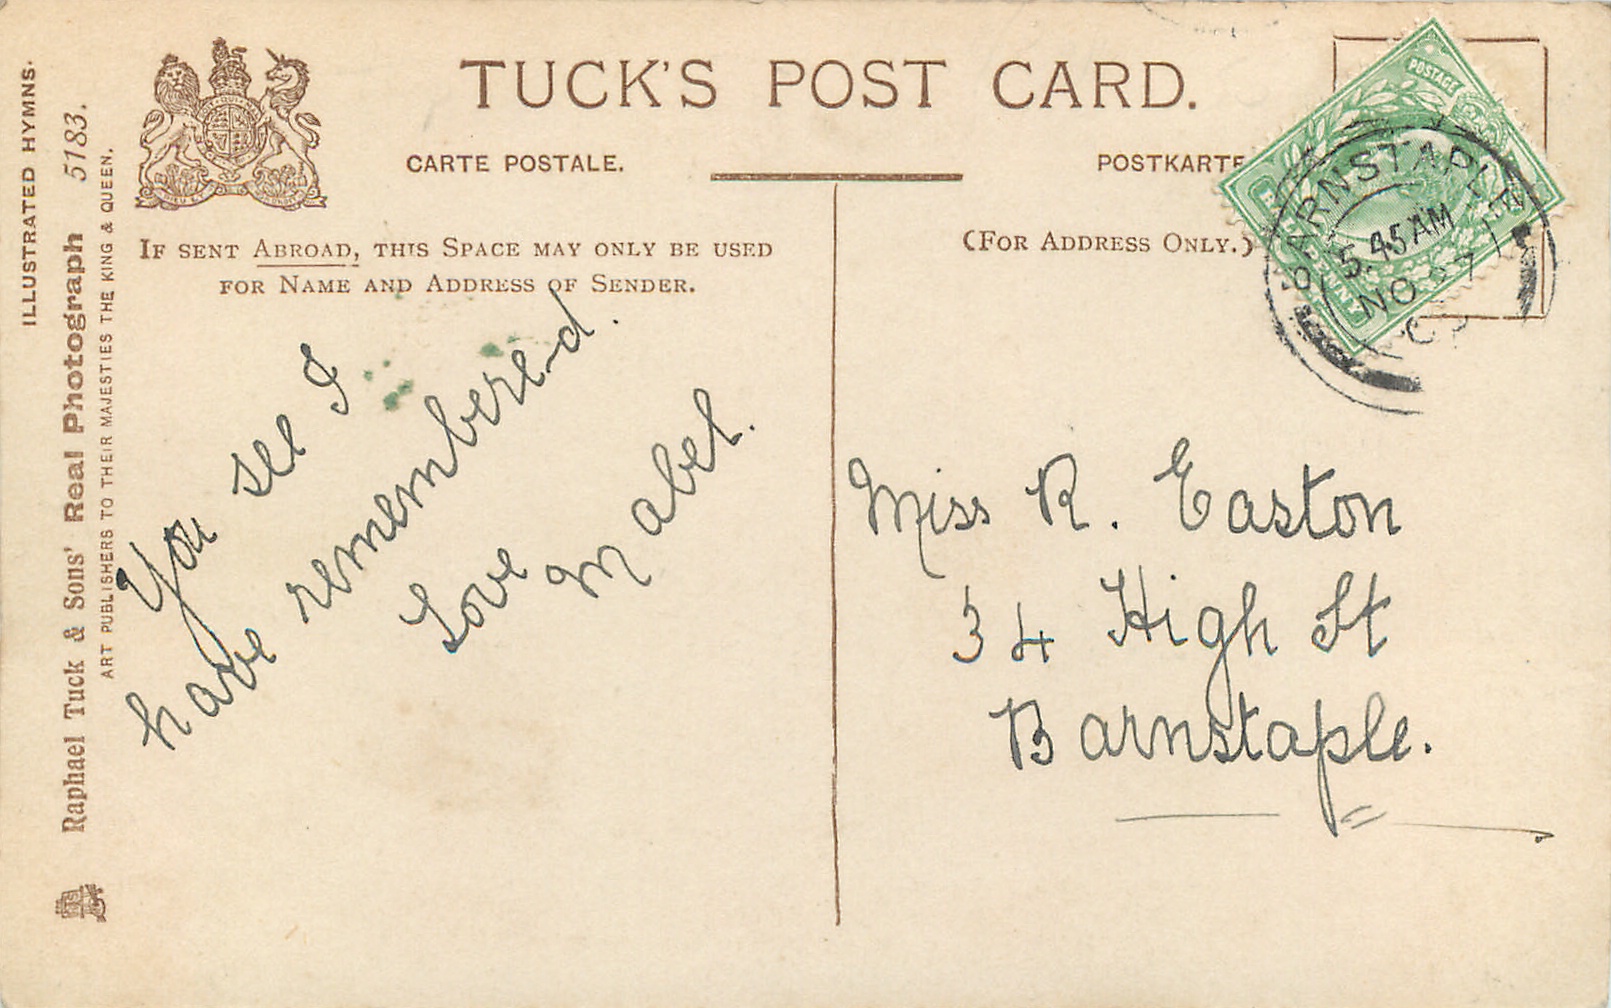 TUCK'S POST CARD.
CARTE POSTALE.
POSTKARTE
IF SENT ABROAD, THIS SPACE MAY ONLY BE USED
FOR NAME AND ADDRESS OF SENDER.
(FOR ADDRESS ONLY.)
ILLUSTRATED HYMNS.
Raphael Tuck & Sons' Real Photograph 5183.
ART PUBLISHERS TO THEIR MAJESTIES THE KING & QUEEN.
POSTAGE
HALFPENNY
BARNSTAPLE
5.45 AM
NO 27
You see I
have remembered.
Love
Mabel.
Miss R. Easton
34 High St
Barnstaple.